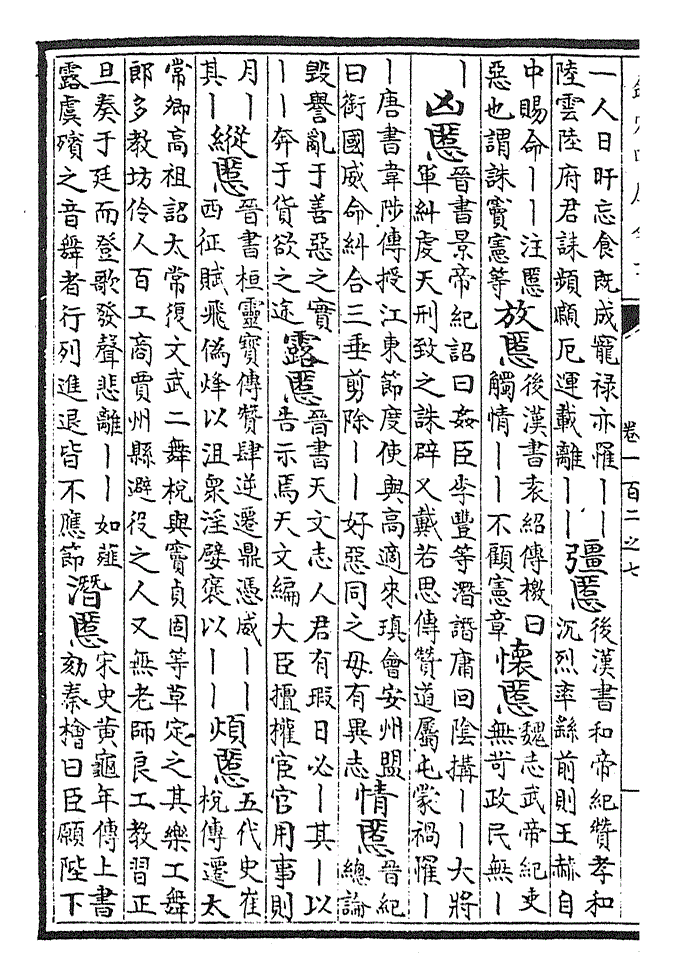 卷一百二之七
一人日旰忘食既成寵祿亦罹｜｜
陸雲陸府君誄頻顣厄運載離｜｜
彊慝
後漢書和帝紀贊孝和
沉烈率繇前則王赫自
中賜命｜｜注慝
惡也謂誅竇憲等
放慝
後漢書袁紹傳檄曰
觸情｜｜不顧憲章
懷慝
魏志武帝紀吏
無苛政民無｜
｜
凶慝
晉書景帝紀詔曰姦臣李豐等潛譖庸回陰搆｜｜大將
軍糾虔天刑致之誅辟又戴若思傳贊道屬屯蒙禍罹｜
｜唐書韋陟傳授江東節度使與高適來瑱會安州盟
曰銜國威命糾合三垂剪除｜｜好惡同之毋有異志
情慝
晉紀
總論
毀譽亂于善惡之實
｜｜奔于貨欲之途
露慝
晉書天文志人君有瑕日必｜其｜以
告示焉天文編大臣擅權宦官用事則
月｜
其｜
縱慝
晉書桓靈寶傳贊肆逆遷鼎憑威｜｜
西征賦飛僞烽以沮衆淫嬖褒以｜｜
煩慝
五代史崔
梲傳遷太
常卿高祖詔太常復文武二舞梲與竇貞固等草定之其樂工舞
郎多教坊伶人百工商賈州縣避役之人又無老師良工教習正
旦奏于廷而登歌發聲悲離｜｜如薤
露虞殯之音舞者行列進退皆不應節
潛慝
宋史黃龜年傳上書
劾秦檜曰臣願陛下